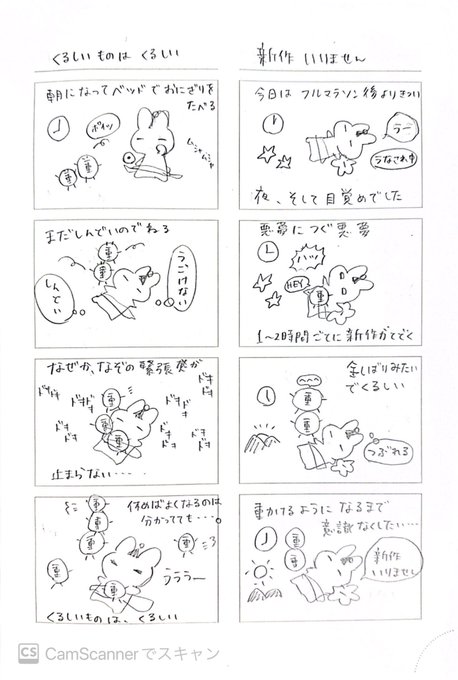 新作 いりません
今日は フルマラソン後よりきつい
うー
うなされ中
夜、そして目覚めでした
悪夢につぐ悪夢
ハッ
HEY
重
1〜2時間ごとに新作がでてく
金しばりみたい
でくるしい
重
重
つぶれる
重かけるように なるまで
意識なくしたい…
重
重
新作
いりません
くるしいものは くるしい
朝になってベッドでおにぎりを
たべる
ポイッ
ムシャムシャ
重
重
まだしんどいのでねる
重
重
うごけない
しんどい
なぜか、なぞの緊張感が
ドキドキ
ドキドキ
ドキドキ
ドキドキ
ドキドキ
ドキドキ
重
重
重
止まらない……
休めばよくなるのは
分かってても・・・。
重
重
重
重
重
重
うううー
くるしいものは、くるしい
CS CamScannerでスキャン